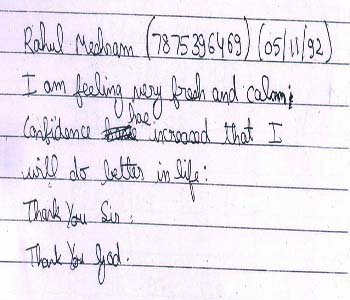 Rahul Meshram (7875396469) (05/11/92)
I am feeling very fresh and calm;
Confidence has increased that I
will do better in life:
Thank You Sir.
Thank You God.